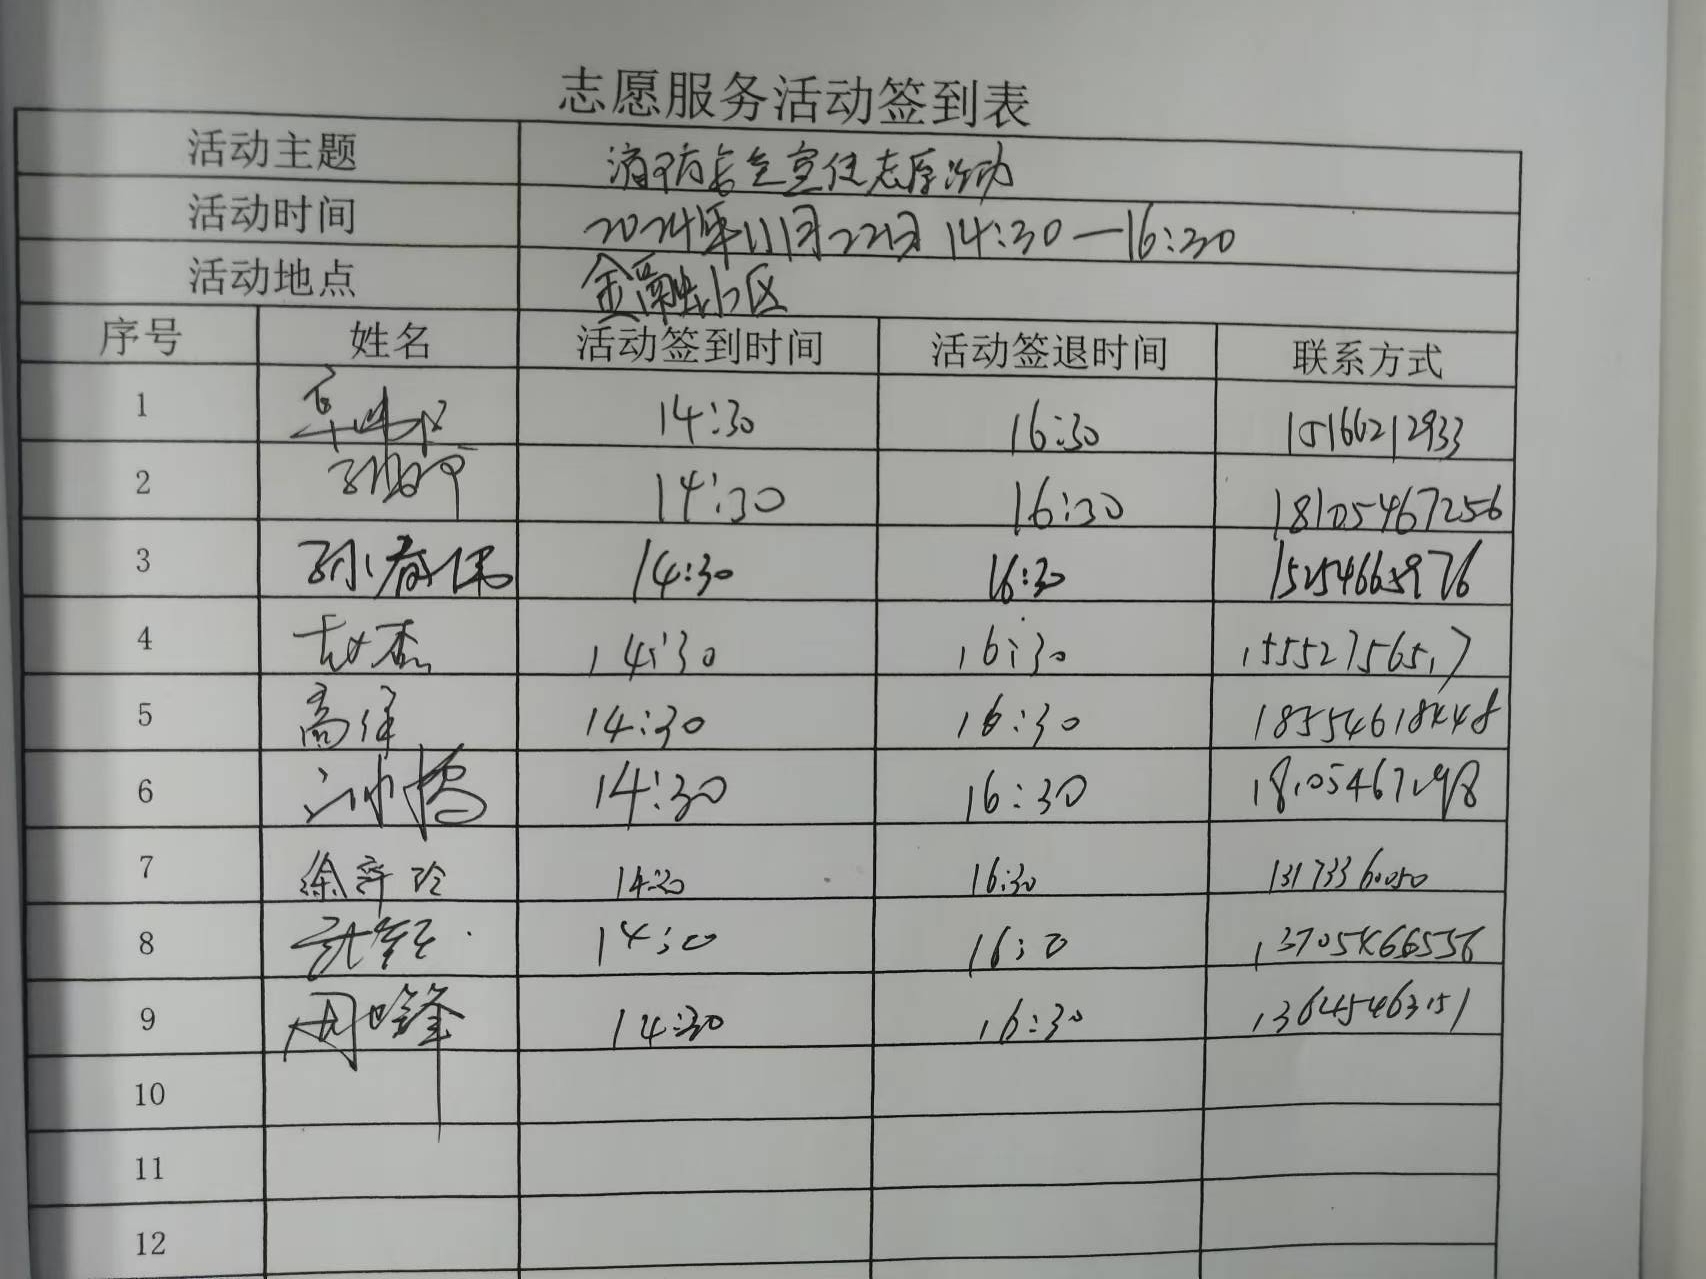 志愿服务活动签到表
活动主题 消防安全宣传志愿活动
活动时间 2024年11月22日 14:30—16:30
活动地点 金融小区
序号 姓名 活动签到时间 活动签退时间 联系方式
1 14:30 16:30 15166212933
2 14:30 16:30 18105467256
3 孙春伟 14:30 16:30 15254665976
4 赵杰 14:30 16:30 15552756517
5 高健 14:30 16:30 18554618448
6 14:30 16:30
7 徐萍玲 14:30 16:30 13173360050
8 14:30 16:30 13705466556
9 周峰 14:30 16:30 13645463151
10
11
12